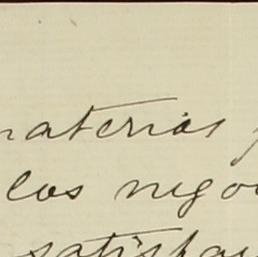 materias
los nego
satisfac